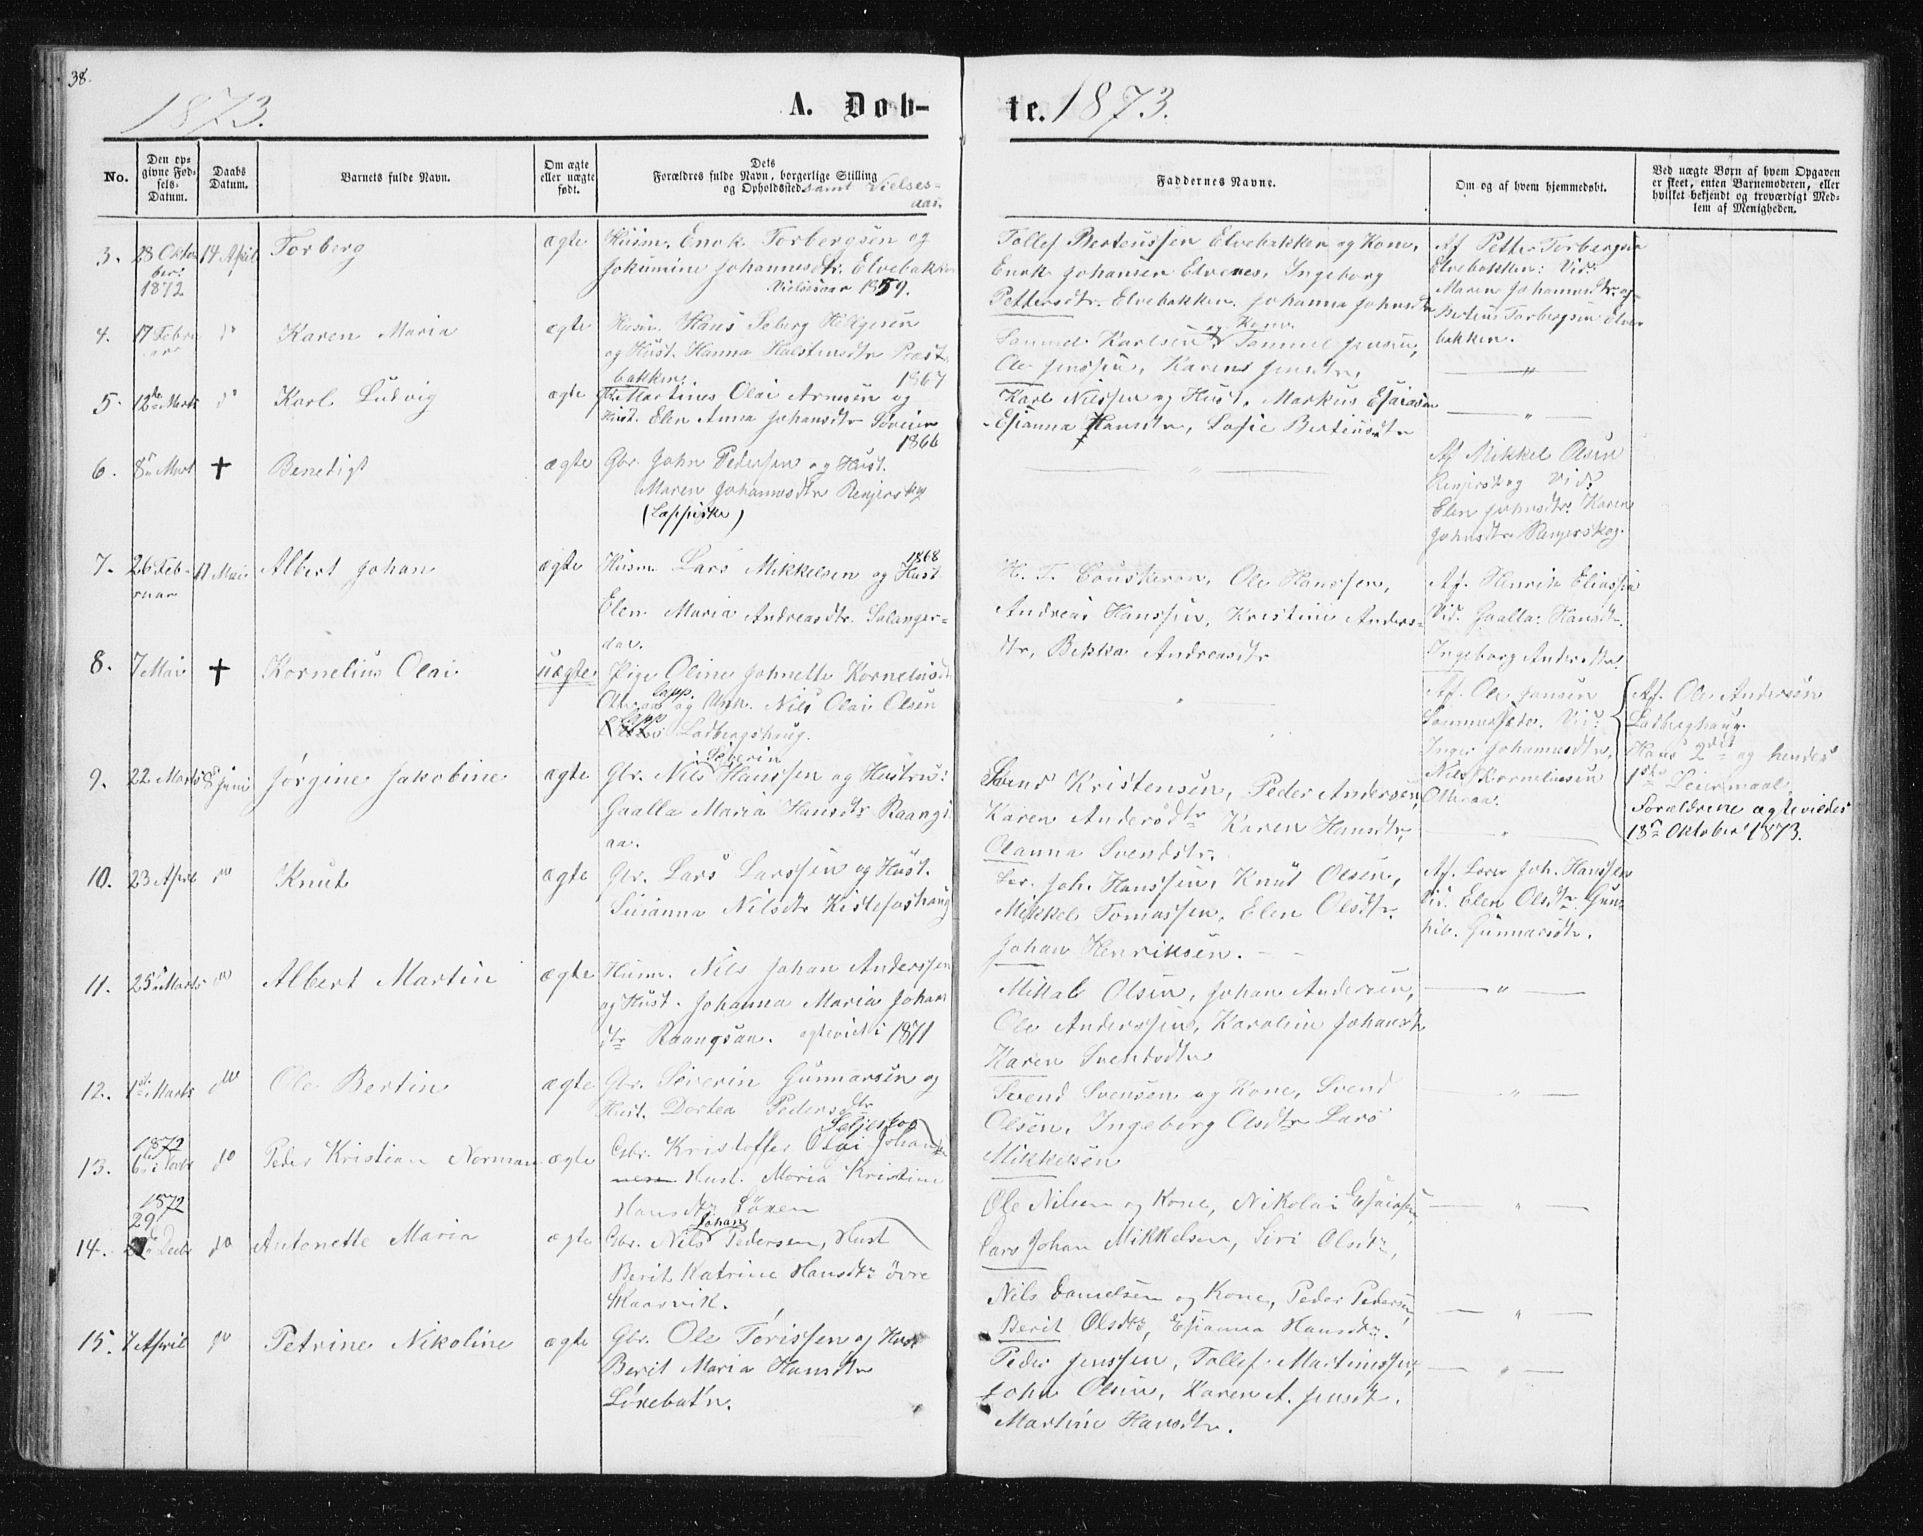 38.
1873.
A. Døb-
te. 1873.
No.
Den op-
givne Fød-
sels-
Datum.
Daabs
Datum.
Barnets fulde Navn.
Om ægte
eller uægte
født.
Dets
Forældres fulde Navn, borgerlige Stilling
og Opholdssted. samt Vielses-
aar.
Faddernes Navne.
Om og af hvem hjemmedøbt.
Ved uægte Børn af hvem Opgaven
er skeet, enten Barnemoderen, eller
hvilket bekjendt og troværdigt Med-
lem af Menigheden.
3. 28 Okto
ber
1872
14 April
Torberg
ægte
Husm. Enok Torbergsen og
Jokumine Johannesdtr. Elvebakken
Vielsesaar 1859.
Tollef Berteussen Elvebakken og Kone,
Enok Johansen Elvenes, Ingeborg
Pettersdtr. Elvebakken, Johanna Johnsdtr
Af Petter Torbergsen
Elvebakken: Vid:
Maren Johannesdtr. og
Bertius Torbergsen Elve
bakken.
4. 17 Febru
ar
do
Karen Maria
ægte
Husm. Hans Seberg Helgesen
og Hust. Hanna Halstensdtr Præst
bakken. 1867
Sammel Karlsen og Kone, Sammel Jensen,
Ole Jenssen, Karen Jensdtr,
— " —
5. 12de Marts
do
Karl Ludvig
ægte
Martines Olai Arnesen og
Hust. Elen Anna Johansdtr Søveien
1866
Karl Nilssen og Hust, Markus Esaiasen
Esianna Hansdtr, Sofie Bertiusdtr
— " —
6. 8de Mart
✝
Benedigt
ægte
Gbr. John Pedersen og Hust.
Maren Johannesdtr Renjerskog
(Lappiske)
— " —
Af Mikkel Olsen
Renjerskog Vid:
Elen Johnsdtr. Karen
Johnsdtr Renjerskog.
7. 26 Feb-
ruar
11 Mai
Albert Johan
ægte
Husm. Lars Mikkelsen og Hust 1868
Elen Maria Andreasdtr. Salanger-
dal.
Ole Hanssen,
Andreas Hanssen, Kristine Anders-
dtr, Bekka Andreasdtr
Af. Henrik Eliassen
Vid. Gaalla Hansdtr.
Ingeborg Andersdtr.
8. 7 Mai
✝
Kornelius Olai
uægte
Pige Oline Johnette Kornelusdtr
lapp og Unk. Nils Olai Olsen
Lapp Ladbergshaug.
"
Af. Ole Jansen
Vid:
Inger Johannesdtr,
Nils Korneliussen
Af. Ole Andersen
Ladbergshaug.
Hans 2det og hendes
1ste Leiermaal.
Forældrene ægteviedes
18de Oktober 1873.
9. 22 Marts
8 Juni
Jørgine Jakobine
ægte
Gbr. Nils Severin Hanssen og Hustru:
Gaalla Maria Hansdtr Raangs
aa.
Svend Kristensen, Peder Andersen,
Karen Andersdtr Karen Hansdtr,
Olanna Svendsdtr.
— " —
10. 23 April
do
Knut
ægte
Gbr. Lars Larssen og Hust.
Susanna Nilsdtr Kistefoshaug
Joh. Hanssen, Knut Olsen,
Mikkel Tomassen, Elen Olsdtr.
Johan Henriksen. —
Af. Lærer Joh. Hanssen
Vid. Elen Olsdtr Gun-
hil. Gunnarsdtr.
11. 25de Marts
do
Albert Martin
ægte
Husm. Nils Johan Anderssen
og Hust. Johanna Maria Johans
dtr Raangsaa. ægteviet i 1871
Mikal Olsen, Johan Andersen,
Ole Anderssen, Karoline Johansdtr
Karen Svendsdtr
— " —
12. 1ste Marts
do
Ole Bertin
ægte
Gbr. Severin Gunnarsen og
Hust. Dortea Pedersdtr
Seljeskog
Svend Svensen og Kone, Svend
Olsen, Ingeborg Olsdtr Lars
Mikkelsen
— " —
13. 1872
do
Peder Kristian Norman
ægte
Gbr. Kristoffer Olai Johan
Hust. Maria Kristine
Hansdtr Løxen
Ole Nilsen og Kone, Nikolai Esaiassen,
Lars Johan Mikkelsen, Siri Olsdtr,
— " —
14. 1872
29
Decbr
do
Antonette Maria
ægte
Gbr. Nils Johan Pedersen, Hust
Berit Katrine Hansdtr øvre
Skaarvik.
Nils Danielsen og Kone, Peder Pedersen,
Berit Olsdtr, Esianna Hansdtr.
— " —
15. 7 April
do
Petrine Nikoline
ægte
Gbr. Ole Tørissen og Hust
Berit Maria Hansdtr
Løxebotn.
Peder Jenssen, Tollef Martinussen,
John Olsen, Karen A. Jensdtr.
Martine Hansdtr.
— " —